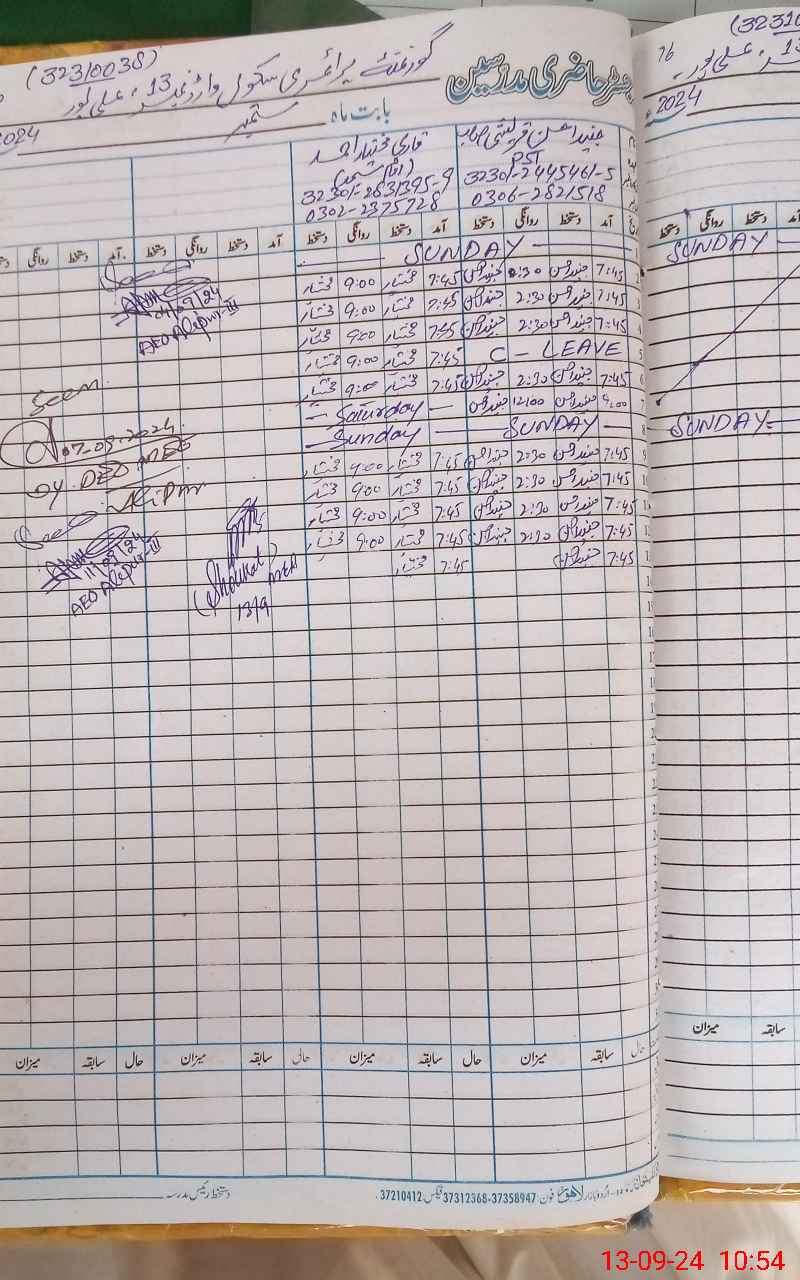 رجسٹر حاضری مدرسین
گورنمنٹ پرائمری سکول وارڈ نمبر 13، علی پور
(32310038)
بابت ماہ ستمبر 2024
جنید احسن قریشی صاحب
PST
32301-2445461-5
0306-2821518
قاری مختیار احمد
32301-2631395-9
0302-2375728
آمد دستخط روانگی دستخط آمد دستخط روانگی دستخط آمد دستخط روانگی دستخط آمد دستخط روانگی دستخط
SUNDAY
7:45 جنید احسن 0:30 جنید احسن 7:45 مختیار 9:00 مختیار
7:45 جنید احسن 2:30 جنید احسن 7:45 مختیار 9:00 مختیار
7:45 جنید احسن 2:30 جنید احسن 7:45 مختیار 9:00 مختیار
C - LEAVE 7:45 مختیار 9:00 مختیار
7:45 جنید احسن 2:30 جنید احسن 7:45 مختیار 9:00 مختیار
9:00 جنید احسن 12:00 جنید احسن - Saturday -
SUNDAY - Sunday -
7:45 جنید احسن 2:30 جنید احسن 7:45 مختیار 9:00 مختیار
7:45 جنید احسن 2:30 جنید احسن 7:45 مختیار 9:00 مختیار
7:45 جنید احسن 2:30 جنید احسن 7:45 مختیار 9:00 مختیار
7:45 جنید احسن 2:30 جنید احسن 7:45 مختیار 9:00 مختیار
7:45 جنید احسن 7:45 مختیار
04/9/24
AEO Alipur-III
Seen
07-09-2024
Dy. DEO
Alipur
11/09/24
AEO Alipur-III
(Shoukat)
13/9
حال سابقہ میزان حال سابقہ میزان حال سابقہ میزان حال سابقہ میزان
دستخط رئیس مدرسہ
اردو بازار لاہور فون: 37358947-37312368 فیکس: 37210412
(32310
13، علی پور
76
2024
آمد دستخط روانگی دستخط
SUNDAY
SUNDAY
سابقہ میزان
13-09-24 10:54